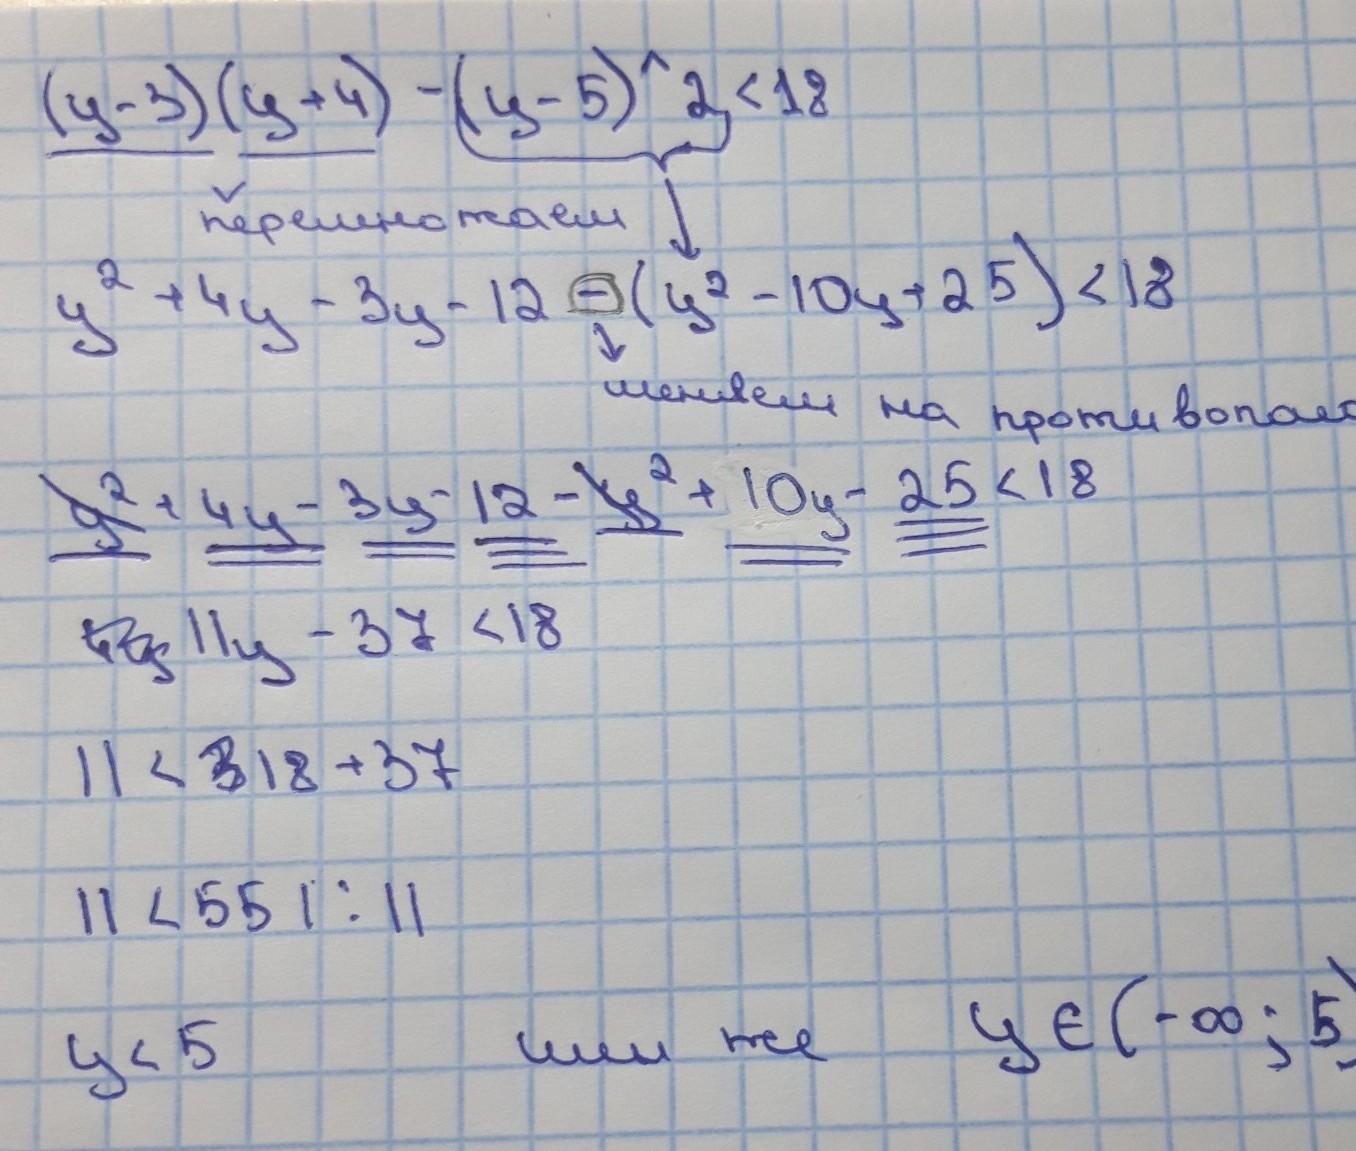 (y-3)(y+4) -(y-5)^2<18
перемножаем
y² +4y -3y-12 -(y² -10y+25)<18
меняем на противопол
y² + 4y - 3y- 12 - y² + 10y- 25<18
11y -37 <18
11 < 18 +37
11 < 55 | : 11
y< 5 или же y ∈ (-∞; 5)